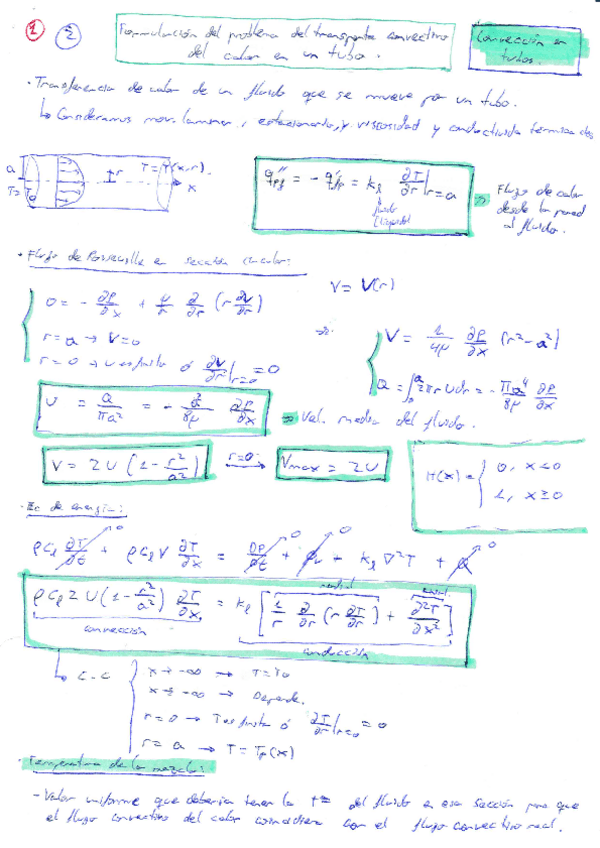 1 2
Formulación del problema del transporte convectivo
del calor en un tubo.
Convección en
tubos
· Transferencia de calor de un fluido que se mueve por un tubo.
↳ Consideramos mov. laminar, estacionario, y viscosidad y conductividad térmica ctes
a
T = T0
r
T = T(x,r).
x
q''pf = - q''fp = kl ∂T/∂r |r=a
fluido
(líquido)
⇒ Flujo de calor
desde la pared
al fluido.
· Flujo de Poiseuille en sección circular:
0 = - ∂P/∂x + μ/r ∂/∂r (r ∂v/∂r)
r = a → v = 0
r = 0 → v es finita ó ∂v/∂r |r=0 = 0
V = V(r)
⇒
V = 1/4μ ∂P/∂x (r² - a²)
Q = ∫0^a 2πr v dr = - πa⁴/8μ ∂P/∂x
U = Q/πa² = - a²/8μ ∂P/∂x
⇒ Val. medio del fluido.
V = 2U (1 - r²/a²)
r=0
→
Vmax = 2U
H(x) = { 0, x < 0
1, x ≥ 0
· Ec de energía:
ρ cl ∂T/∂t → 0 + ρ cl V ∂T/∂x = DP/Dt → 0 + ϕv → 0 + kl ∇²T + Q → 0
ρ cl 2U (1 - r²/a²) ∂T/∂x = kl [ 1/r ∂/∂r (r ∂T/∂r) + ∂²T/∂x² ]
convección
conducción
↳ C-C
x → -∞ → T = T0
x → -∞ → Depende.
r = 0 → T es finita ó ∂T/∂r |r=0 = 0
r = a → T = Tp(x)
· Temperatura de la mezcla:
- Valor uniforme que debería tener la tª del fluido en esa sección para que
el flujo convectivo del calor coincidiera con el flujo convectivo real.